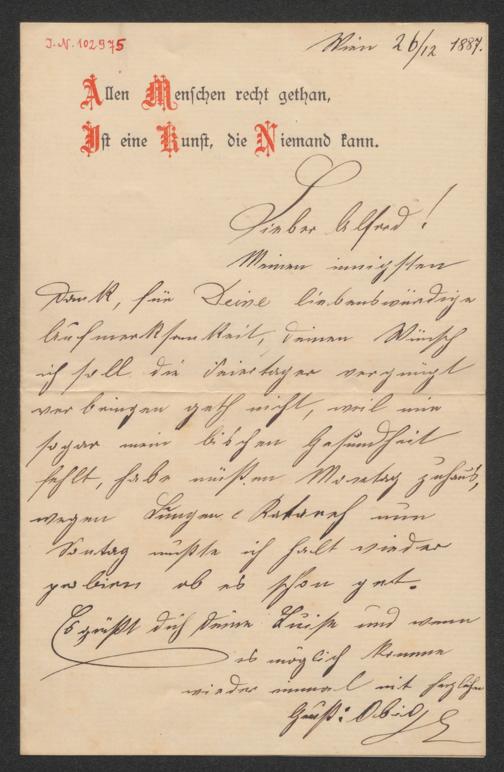 I.N. 102975
Wien 26/12 1887.
Allen Menschen recht gethan,
Ist eine Kunst, die Niemand kann.
Lieber Alfred!
Meinen innigsten
Dank, für Deine liebenswürdige
Aufmerksamkeit, deinen Wunsch
ich soll die Feiertager vergnügt
verbringen geth nicht, weil mir
sogar mein bischen Gesundheit
fehlt, habe müßen Montag zuhaus,
wegen Lungen Katareh nun
Sontag mußte ich halt wieder
probiren ob es schon get.
Es grüßt dich Deine Luise und wenn
es möglich komme
wieder einmal mit herzlichen
Gruß: Obige